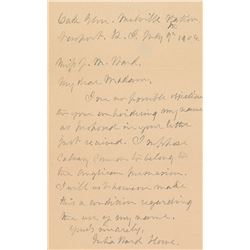 Oak Glen. Melville Station
Newport R. I. July 9th 1906
Miss J. M. Ward.
My dear Madam.
I see no possible objection
to your embroidering my name
as proposed in your letter
just received. I suppose
Calvary Common to belong to
the Anglican persuasion.
I will not however make
this a condition regarding
the use of my name.
Yours sincerely,
Julia Ward Howe.